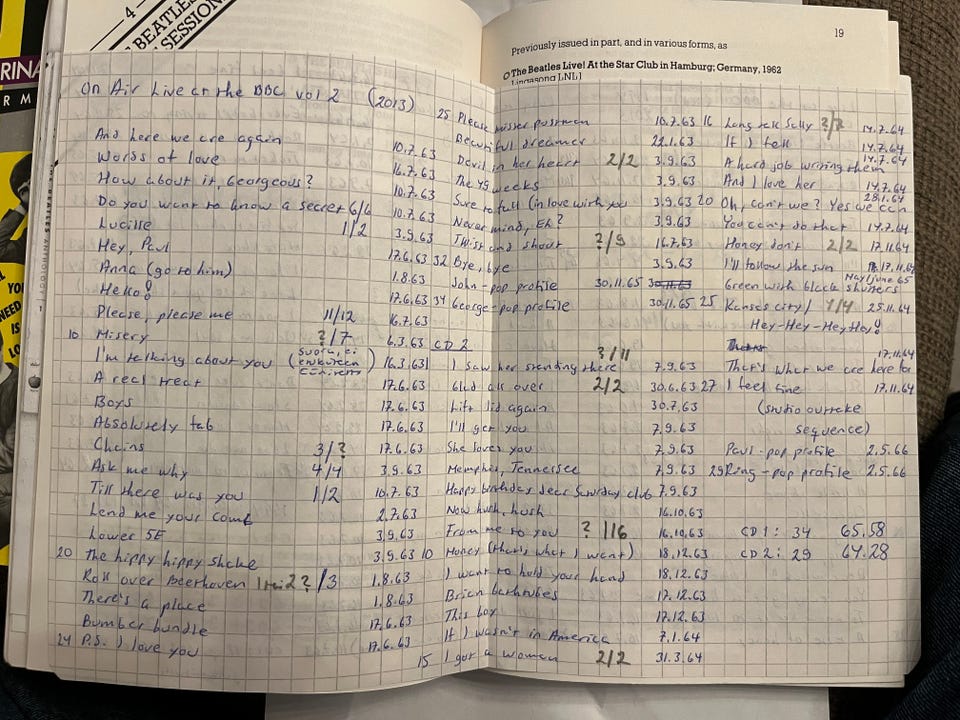 4
BEATLES
SESSION
RINA
R M
YOU
NEED
IS
LO
THE BEATLES ANTHOLOGY
19
Previously issued in part, and in various forms, as
The Beatles Live! At the Star Club in Hamburg; Germany, 1962
Lingasong LNL1
On Air Live at the BBC vol 2 (2013)
And here we are again 10.7.63
Words of love 16.7.63
How about it, Georgeous? 10.7.63
Do you want to know a secret 6/6 10.7.63
Lucille 1/2 3.9.63
Hey, Paul 17.6.63
Anna (go to him) 1.8.63
Hello! 17.6.63
Please, please me 11/12 16.7.63
10 Misery ?/7 6.3.63
I'm talking about you ( ) 16.3.63
A real treat 17.6.63
Boys 17.6.63
Absolutely fab 17.6.63
Chains 3/? 17.6.63
Ask me why 4/4 3.9.63
Till there was you 1/2 10.7.63
Lend me your comb 2.7.63
Lower 5E 3.9.63
20 The hippy hippy shake 3.9.63
Roll over Beethoven 1 tai 2?/3 1.8.63
There's a place 1.8.63
Bumber bundle 17.6.63
24 P.S. I love you 17.6.63
25 Please mister postman 10.7.63
Beautiful dreamer 22.1.63
Devil in her heart 2/2 3.9.63
The 49 weeks 3.9.63
Sure to fall (in love with you 3.9.63
Never mind, Eh? 3.9.63
Twist and shout ?/9 16.7.63
32 Bye, bye 3.9.63
John - pop profile 30.11.65 30.11.63
34 George - pop profile 30.11.65
CD 2
I saw her standing there ?/11 7.9.63
Glad all over 2/2 30.6.63
Lift lid again 30.7.63
I'll get you 7.9.63
She loves you 7.9.63
Memphis, Tennessee 7.9.63
Happy birthday dear Saturday club 7.9.63
Now hush, hush 16.10.63
From me to you ?/16 16.10.63
10 Money (that's what I want) 18.12.63
I want to hold your hand 18.12.63
Brian bathtubes 17.12.63
This boy 17.12.63
If I wasn't in America 7.1.64
15 I got a woman 2/2 31.3.64
16 Long tall Sally ?/7 14.7.64
If I fell 14.7.64
A hard job writing them 14.7.64
And I love her 14.7.64
20 Oh, can't we? Yes we can 28.1.64
You can't do that 14.7.64
Honey don't 2/2 17.11.64
I'll follow the sun 17.11.64
Green with black shutters May/June 65
25 Kansas city/ 4/4 25.11.64
Hey-Hey-Hey-Hey!
That's what we are here for 17.11.64
27 I feel fine 17.11.64
(studio outtake
sequence)
Paul - pop profile 2.5.66
29 Ring - pop profile 2.5.66
CD 1: 34 65.58
CD 2: 29 64.28